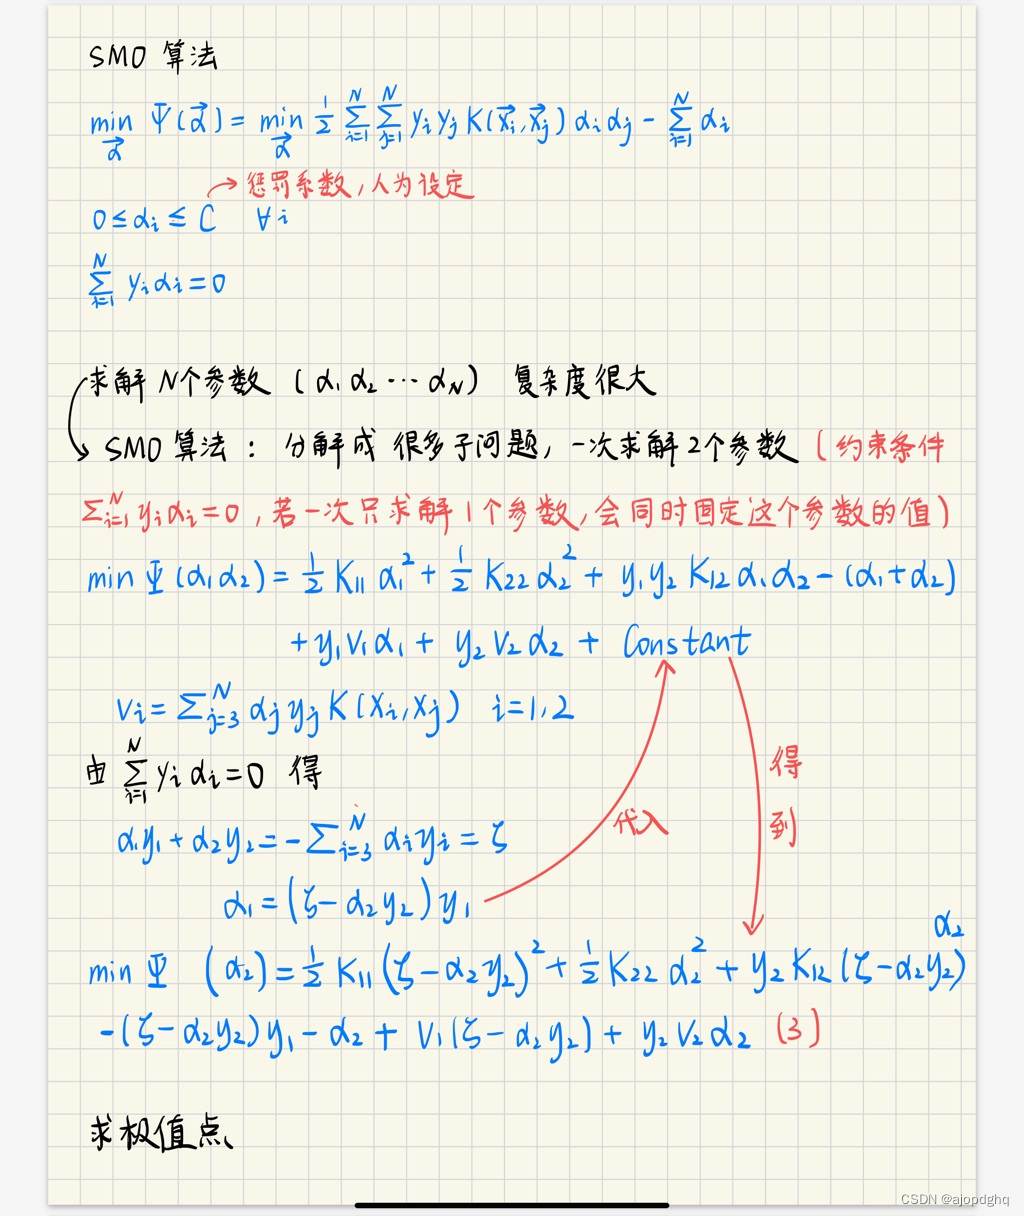 SMO 算法
min_α⃗ Ψ(α⃗) = min_α⃗ ½ Σ_{i=1}^N Σ_{j=1}^N yᵢyⱼ K(x⃗ᵢ,x⃗ⱼ) αᵢαⱼ - Σ_{i=1}^N αᵢ
→ 惩罚系数,人为设定
0 ≤ αᵢ ≤ C ∀i
Σ_{i=1}^N yᵢαᵢ = 0
求解 N个参数 (α₁ α₂ ⋯ α_N) 复杂度很大
SMO 算法: 分解成 很多子问题, 一次求解2个参数 (约束条件
Σ_{i=1}^N yᵢαᵢ = 0, 若一次只求解1个参数, 会同时固定这个参数的值)
min Ψ(α₁α₂) = ½ K₁₁ α₁² + ½ K₂₂ α₂² + y₁y₂ K₁₂ α₁α₂ - (α₁+α₂)
+ y₁v₁α₁ + y₂v₂α₂ + Constant
vᵢ = Σ_{j=3}^N αⱼyⱼ K(xᵢ,xⱼ) i=1,2
由 Σ_{i=1}^N yᵢαᵢ = 0 得
得到
α₁y₁ + α₂y₂ = -Σ_{i=3}^N αᵢyᵢ = ζ
代入
α₁ = (ζ - α₂y₂) y₁
α₂
min Ψ (α₂) = ½ K₁₁ (ζ - α₂y₂)² + ½ K₂₂ α₂² + y₂ K₁₂ (ζ - α₂y₂)
- (ζ - α₂y₂) y₁ - α₂ + v₁(ζ - α₂y₂) + y₂v₂α₂ (3)
求极值点、
CSDN @ajopdghq